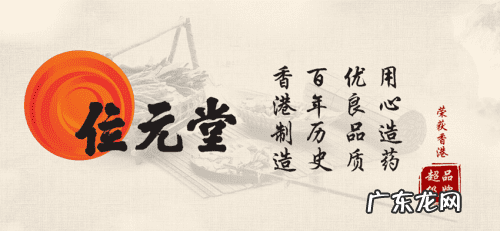 位元堂
香港制造
百年历史
优良品质
用心造药
荣获香港
超级
品牌
广东龙网